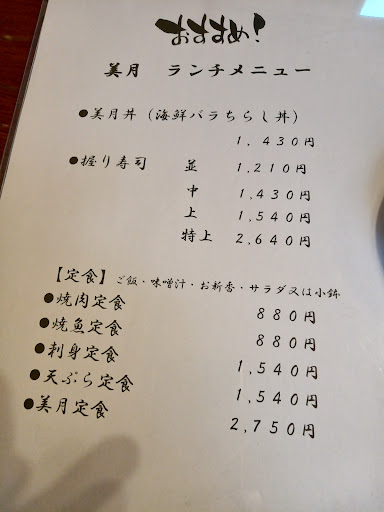 おすすめ!
美月 ランチメニュー
●美月丼(海鮮バラちらし丼)
1,430円
●握り寿司 並 1,210円
中 1,430円
上 1,540円
特上 2,640円
【定食】ご飯・味噌汁・お新香・サラダ又は小鉢
●焼肉定食 880円
●焼魚定食 880円
●刺身定食 1,540円
●天ぷら定食 1,540円
●美月定食 2,750円